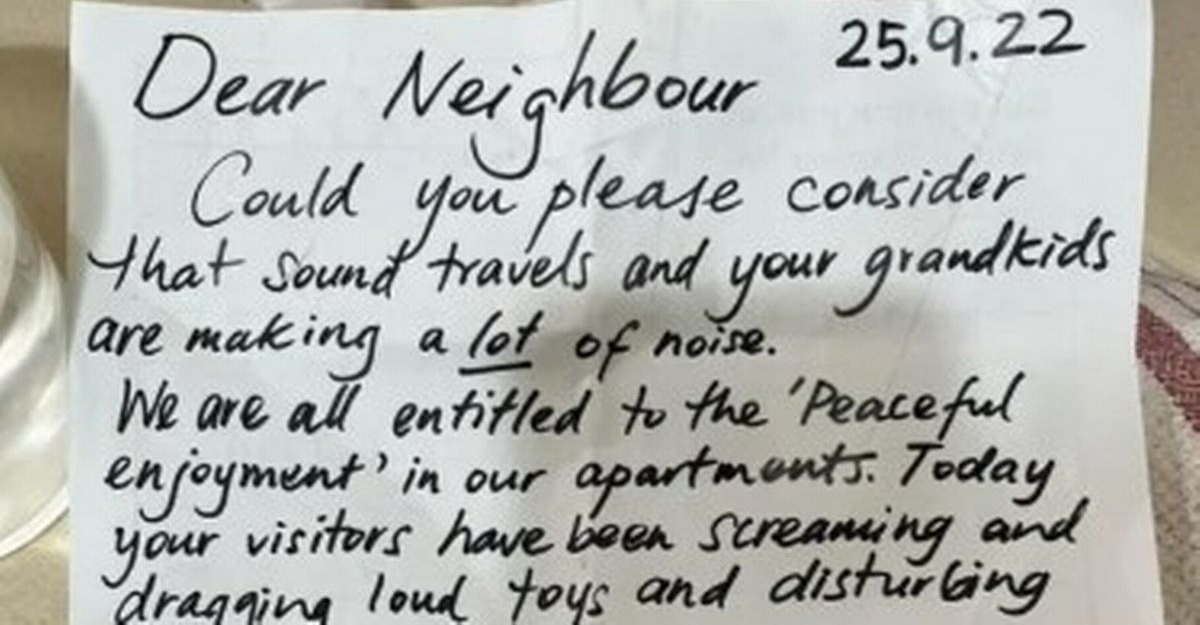 25.9.22
Dear Neighbour
Could you please consider
that sound travels and your grandkids
are making a lot of noise.
We are all entitled to the 'Peaceful
enjoyment' in our apartments. Today
your visitors have been screaming and
dragging loud toys and disturbing